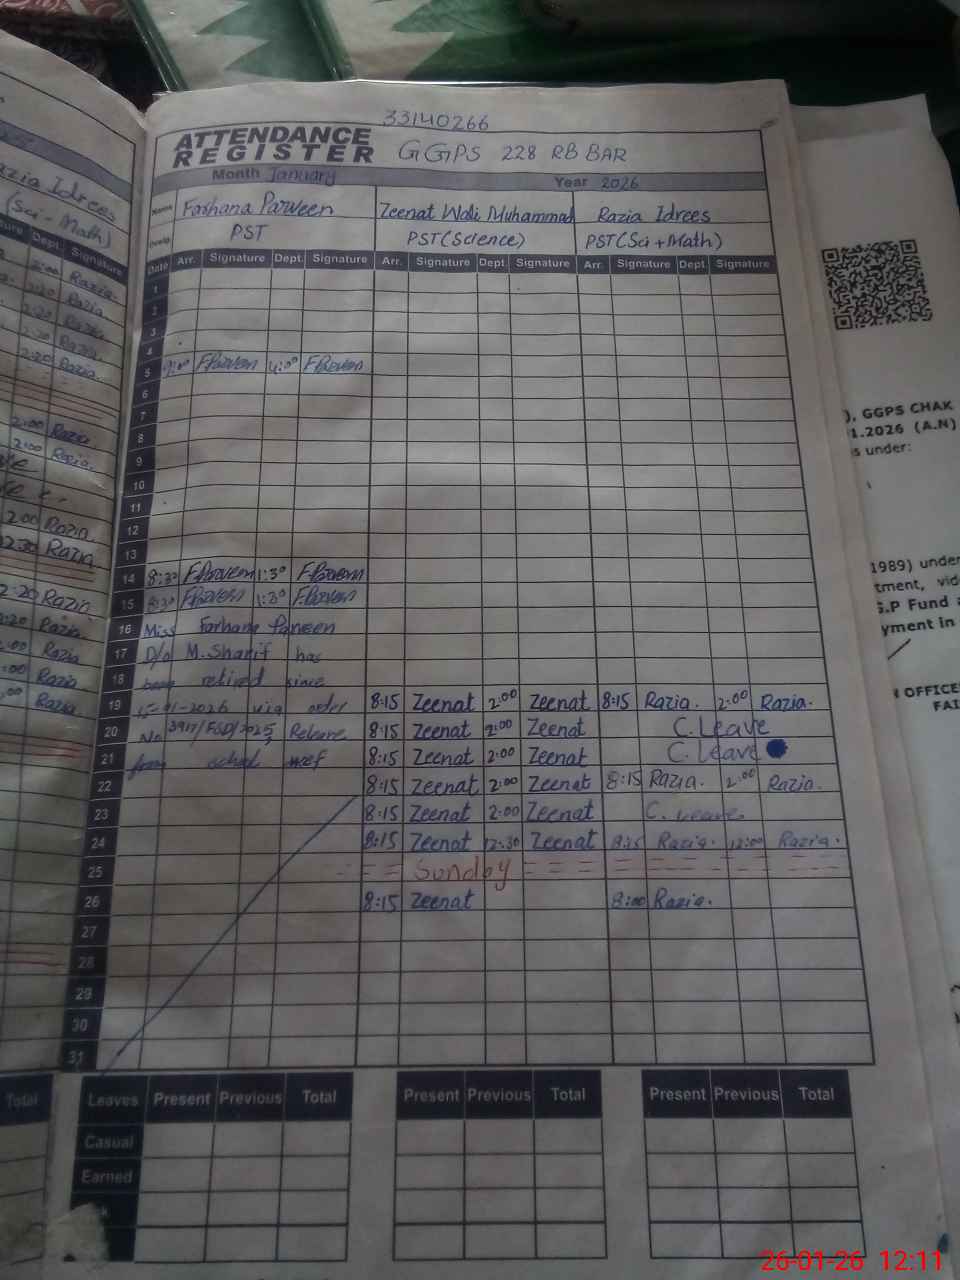 33140266
ATTENDANCE REGISTER GGPS 228 RB BAR
Month January Year 2026
Name Farhana Parveen Zeenat Wali Muhammad Razia Idrees
PST PST(Science) PST(Sci+Math)
Date Arr. Signature Dept. Signature Arr. Signature Dept. Signature Arr. Signature Dept. Signature
1
2
3
4
5 F.Parveen 4:00 F.Parveen
6
7
8
9
10
11
12
13
14 8:30 F.Parveen 1:30 F.Parveen
15 8:30 F.Parveen 1:30 F.Parveen
16 Miss Farhana Parveen
17 D/o M.Sharif has
18 been retired since
19 15-01-2026 via order 8:15 Zeenat 2:00 Zeenat 8:15 Razia. 2:00 Razia.
20 No 3917/FSD/2025, Release 8:15 Zeenat 2:00 Zeenat C.Leave
21 from school 8:15 Zeenat 2:00 Zeenat C.Leave
22 8:15 Zeenat 2:00 Zeenat 8:15 Razia. 2:00 Razia.
23 8:15 Zeenat 2:00 Zeenat C.Leave.
24 8:15 Zeenat 12:30 Zeenat 8:15 Razia. 12:00 Razia.
25 Sunday
26 8:15 Zeenat 8:00 Razia.
27
28
29
30
31
Leaves Present Previous Total Present Previous Total Present Previous Total
Casual
Earned
azia Idrees
(Sci-Math)
Dept. Signature
2:00 Razia.
Razia
2:20 Razia
2:20 Razia.
2:20 Razia.
2:00 Razia
2:00 Razia.
2:00 Razia.
12:30 Razia
2:20 Razia
2:20 Razia
2:00 Razia
:00 Razia
:00 Razia
Total
), GGPS CHAK
1.2026 (A.N)
s under:
1989) under
tment, vid
G.P Fund a
yment in
OFFICE
FAI
26-01-26 12:11